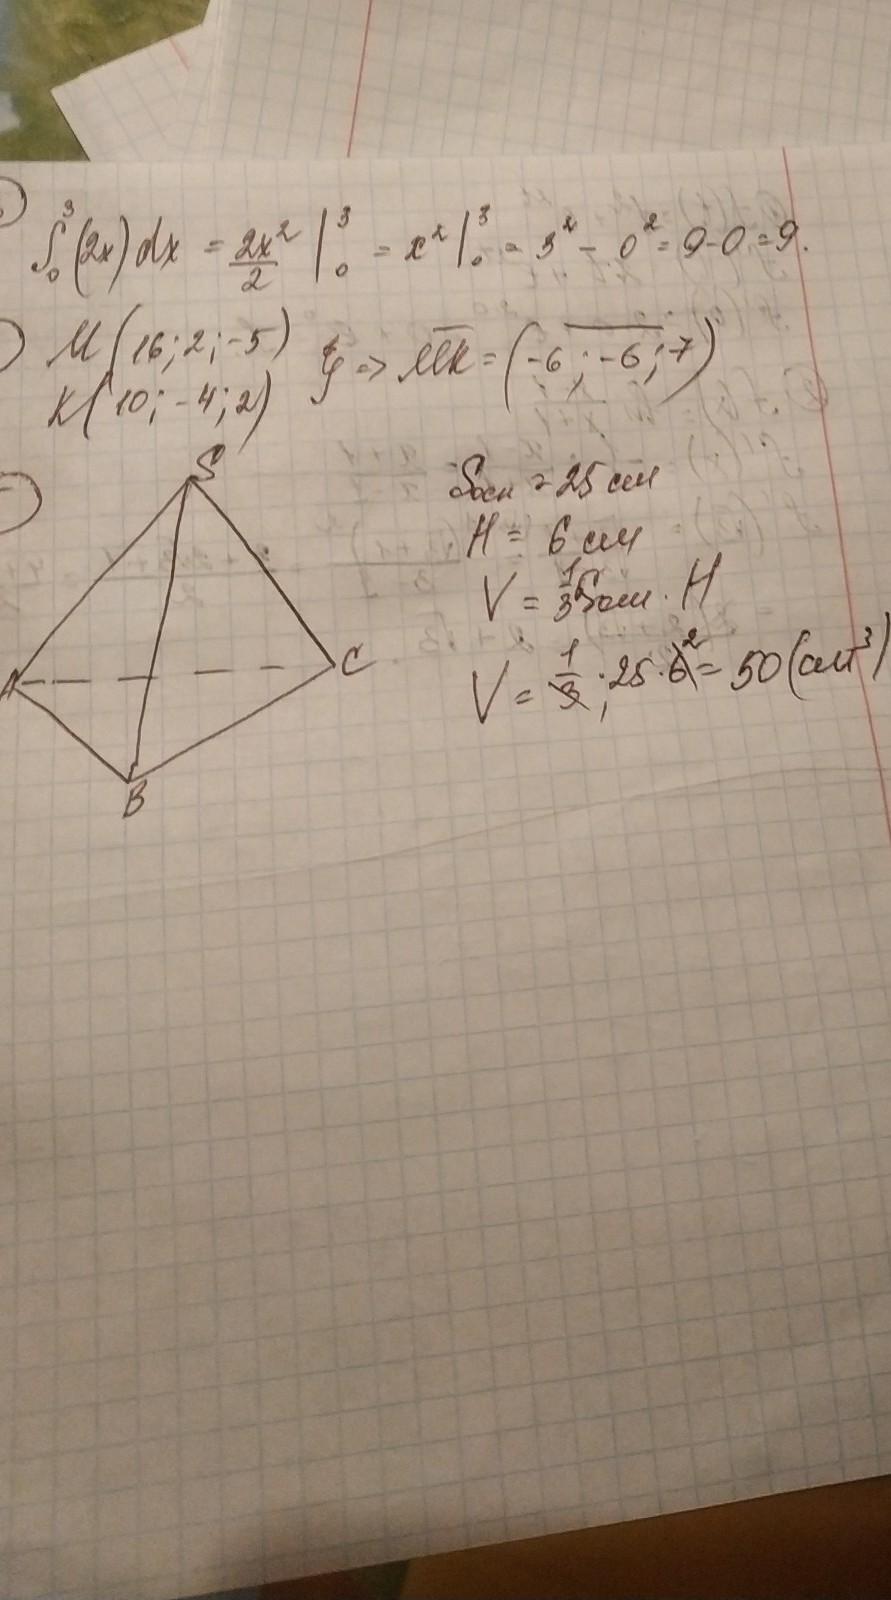 ∫₀³(2x)dx = 2x²/2 |₀³ = x²|₀³ = 3² - 0² = 9-0 = 9.
M(16; 2; -5)
K(10; -4; 2) } => MK = (-6; -6; 7)
S
A
C
B
Sосн = 25 см
H = 6 см
V = 1/3 Sосн · H
V = 1/3 · 25 · 6² = 50 (см³)